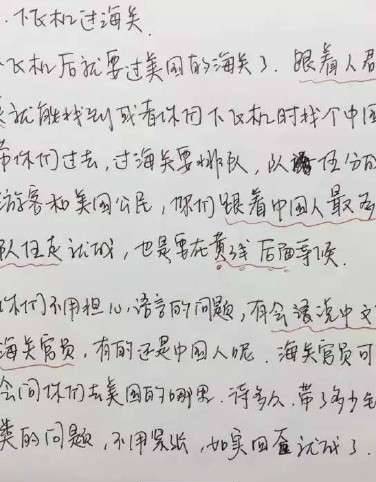 .下飞机过海关.
下飞机后就要过美国的海关了.跟着人群
就能找到或者你们下飞机时找个中国
带你们过去,过海关要排队,队伍分成
游客和美国公民,你们跟着中国人最多
队伍走就成,也是要在黄线后面等候.
你们不用担心语言的问题,有会讲说中文
海关官员,有的还是中国人呢.海关官员可
会问你们去美国的哪里.待多久.带了多少
类的问题,不用紧张,如实回答就成了.